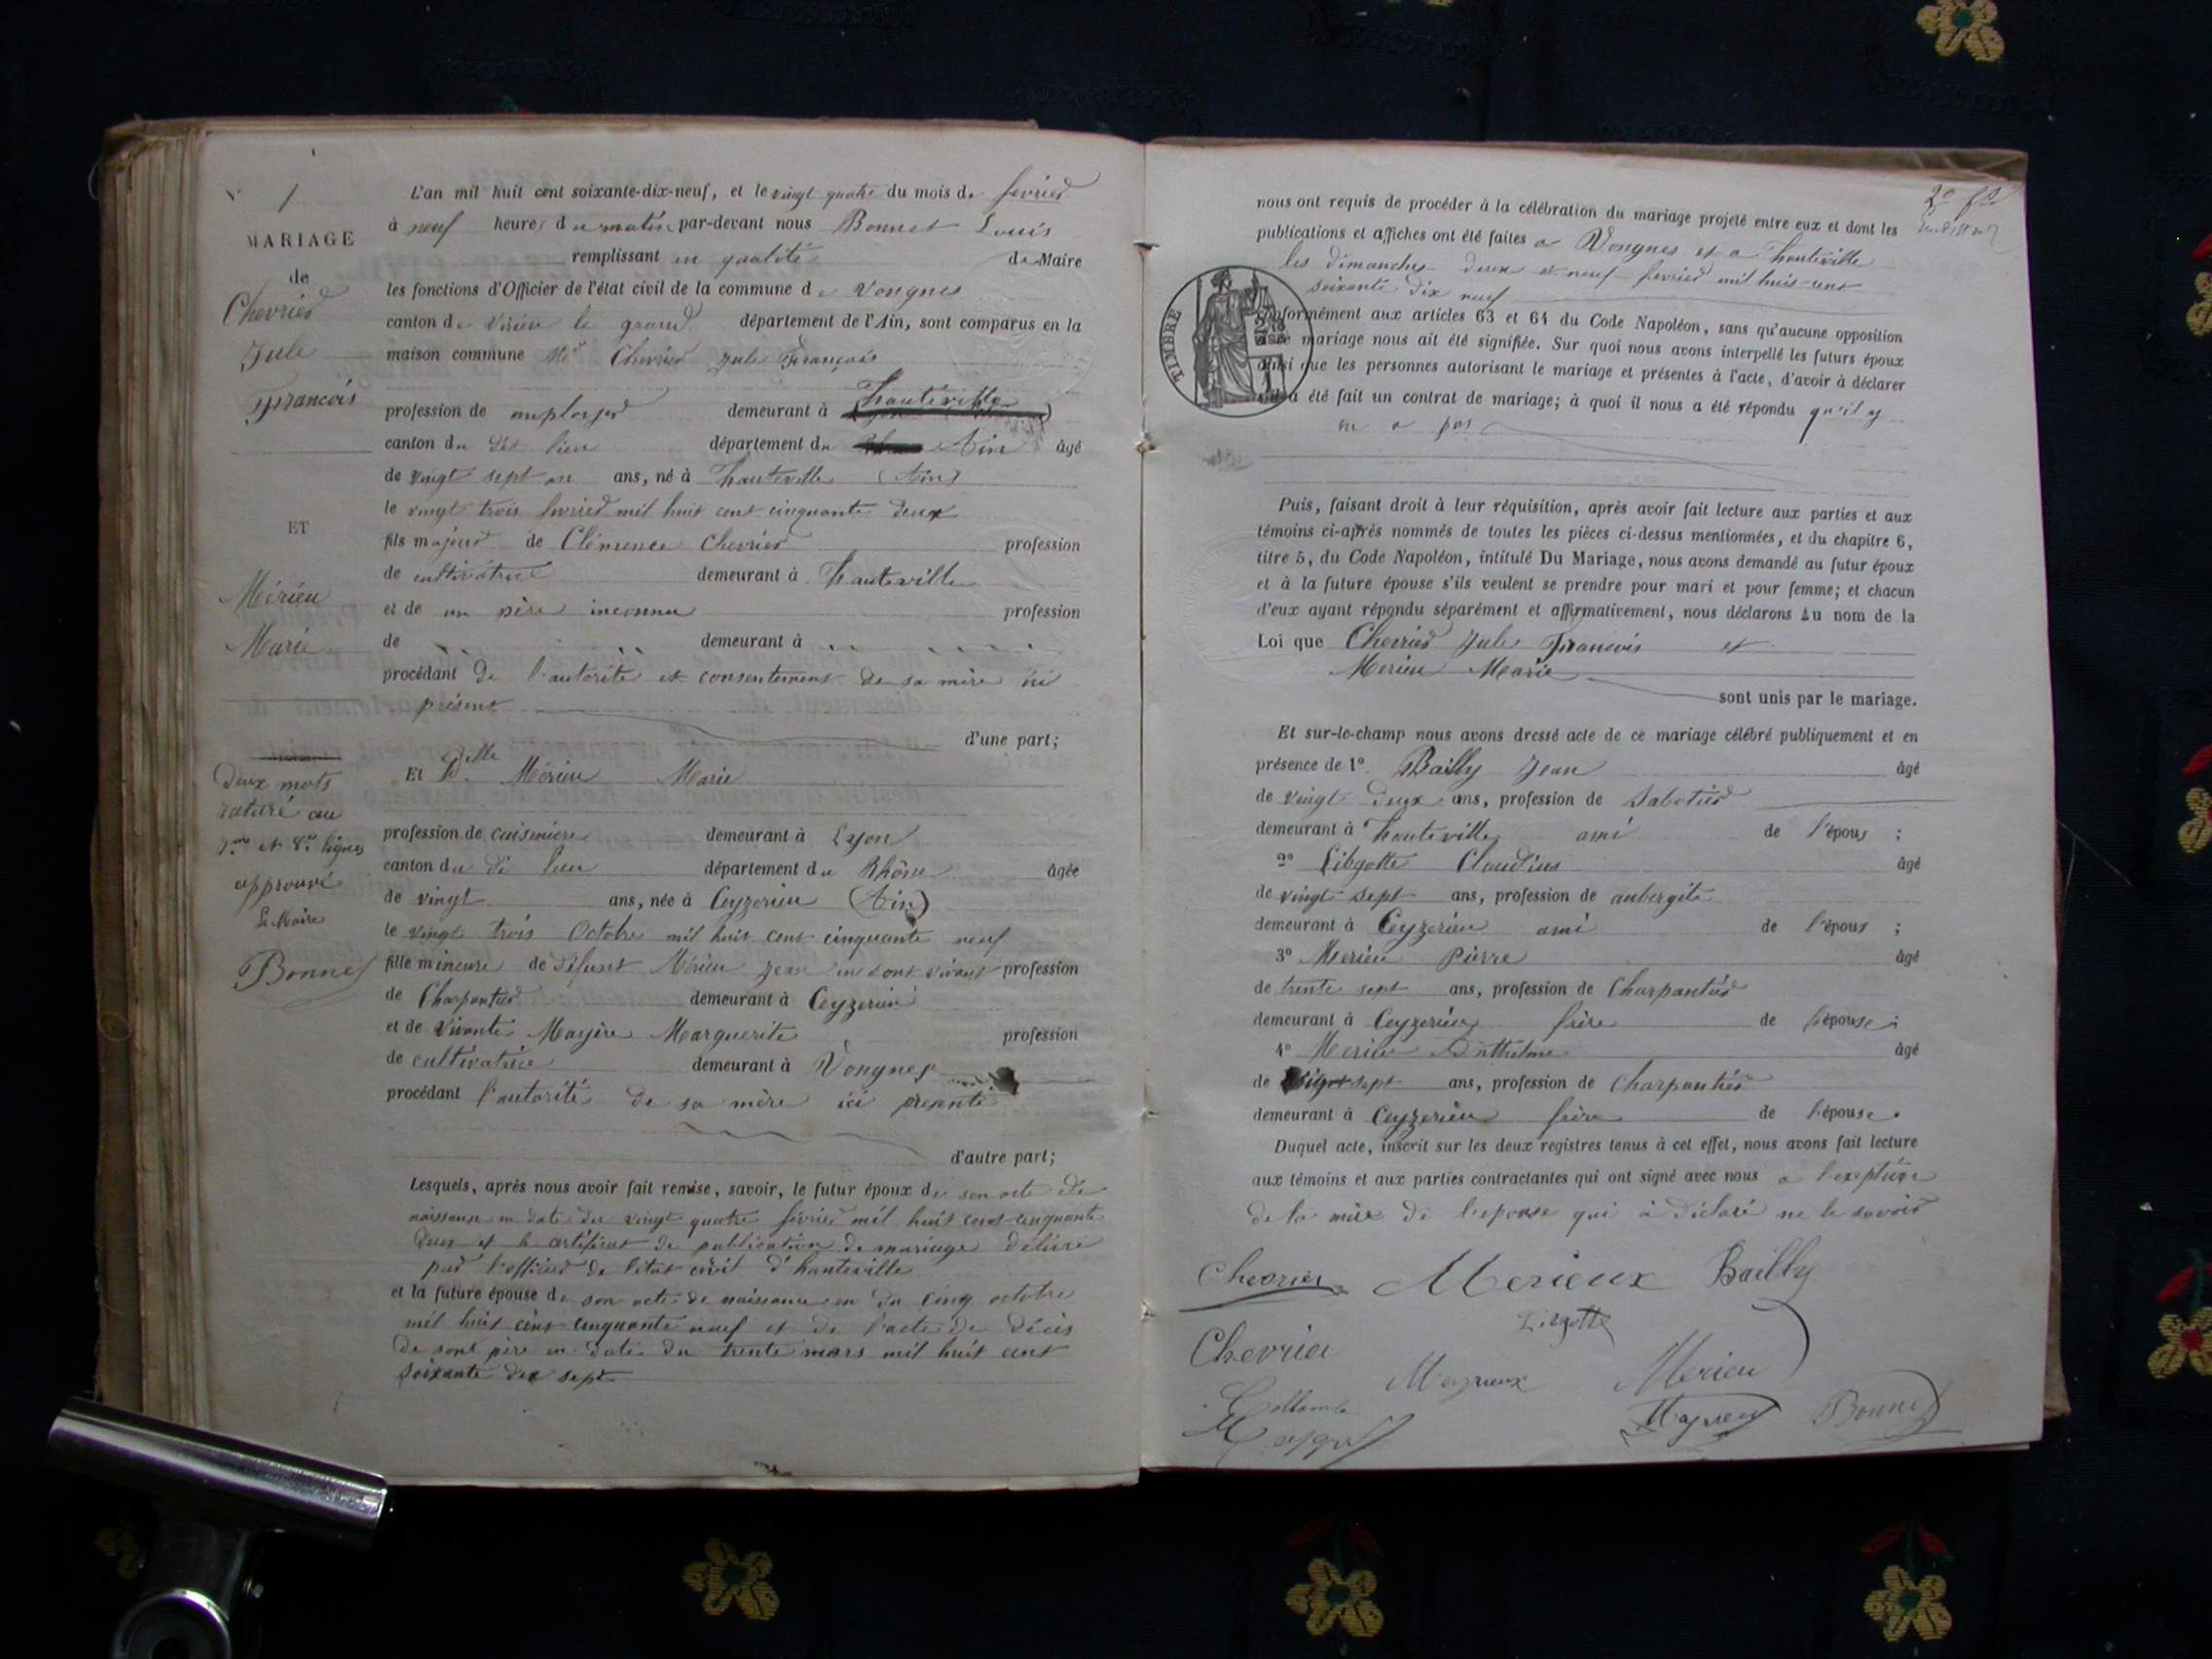 N° 1
MARIAGE
de
Chevrier
Jule
François
ET
Mérieu
Marie
Deux mots
raturé au
7me et 8me lignes
approuvé
Le Maire
Bonnet
L'an mil huit cent soixante-dix-neuf, et le vingt quatre du mois de fevrier
à neuf heures du matin par-devant nous Bonnet Louis
remplissant en qualité de Maire
les fonctions d'Officier de l'état civil de la commune de Vongnes
canton de Virieu le grand département de l'Ain, sont comparus en la
maison commune Chevrier Jule François
profession de employer demeurant à hauteville
canton du dit lieu département du Ain âgé
de vingt sept an ans, né à hauteville (Ain)
le vingt trois fevrier mil huit cent cinquante deux
fils majeur de Clémence Chevrier profession
de cultivatrice demeurant à hauteville
et de un père inconnu profession
de demeurant à
procédant de l'autorité et consentement de sa mère ici
présent
d'une part;
Et Dlle Mérieu Marie
profession de cuisiniere demeurant à Lyon
canton du di lieu département du Rhône âgée
de vingt ans, née à Ceyzerieu (Ain)
le vingt trois Octobre mil huit cent cinquante neuf
fille mineure de défunt Mérieu Jean en sont vivant profession
de Charpentier demeurant à Ceyzerieu
et de vivante Marguerite profession
de cultivatrice demeurant à Vongnes
procédant l'autorité de sa mère ici presente
d'autre part;
Lesquels, après nous avoir fait remise, savoir, le futur époux de son acte de
naissance en date du vingt quatre fevrier mil huit cent cinquante
deux et le certificat de publication de mariage délivré
par l'officier de l'état civil d'hauteville
et la future épouse de son acte de naissance en du cinq octobre
mil huit cent cinquante neuf et de l'acte de décès
de sont père en date du trente mars mil huit cent
soixante dix sept
nous ont requis de procéder à la célébration du mariage projeté entre eux et dont les
publications et affiches ont été faites a Vongnes et a hauteville
les dimanches deux et neuf fevrier mil huit cent
soixante dix neuf
TIMBRE
conformément aux articles 63 et 64 du Code Napoléon, sans qu'aucune opposition
mariage nous ait été signifiée. Sur quoi nous avons interpellé les futurs époux
ainsi que les personnes autorisant le mariage et présentes à l'acte, d'avoir à déclarer
a été fait un contrat de mariage; à quoi il nous a été répondu qu'il y
en a pas
Puis, faisant droit à leur réquisition, après avoir fait lecture aux parties et aux
témoins ci-après nommés de toutes les pièces ci-dessus mentionnées, et du chapitre 6,
titre 5, du Code Napoléon, intitulé Du Mariage, nous avons demandé au futur époux
et à la future épouse s'ils veulent se prendre pour mari et pour femme; et chacun
d'eux ayant répondu séparément et affirmativement, nous déclarons Au nom de la
Loi que Chevrier Jule Francois et
Merieu Marie
sont unis par le mariage.
Et sur-le-champ nous avons dressé acte de ce mariage célébré publiquement et en
présence de 1° Bailly Jean âgé
de vingt deux ans, profession de Sabotier
demeurant à hauteville ami de l'épous ;
2° Claudius âgé
de vingt sept ans, profession de aubergite
demeurant à Ceyzerieu ami de l'épous ;
3° Merieu Pierre âgé
de trente sept ans, profession de Charpantier
demeurant à Ceyzerieu frère de l'épouse ;
4° Merieu Anthelme âgé
de vingt sept ans, profession de Charpantier
demeurant à Ceyzerieu frère de l'épouse .
Duquel acte, inscrit sur les deux registres tenus à cet effet, nous avons fait lecture
aux témoins et aux parties contractantes qui ont signé avec nous a l'exeption
de la mère de l'epouse qui à déclaré ne le savoir
Chevrier Merieux Bailly
Chevrier
Meyrieux Merieu
Bonnet